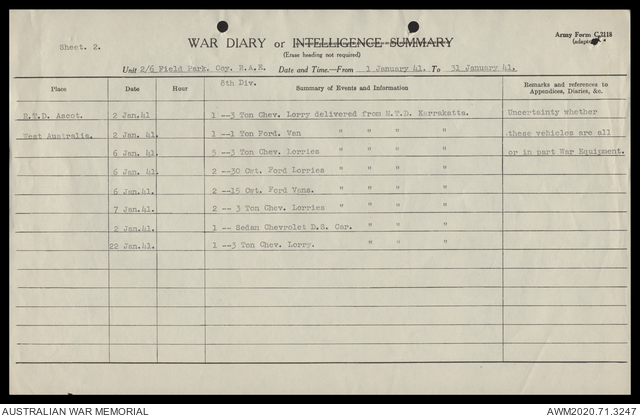 Sheet. 2.
WAR DIARY or INTELLIGENCE SUMMARY
Army Form C.2118
(adapted)
(Erase heading not required)
Unit 2/6 Field Park. Coy. R.A.E. Date and Time.—From 1 January 41. To 31 January 41.
8th Div.
Place Date Hour Summary of Events and Information Remarks and references to Appendices, Diaries, &c.
R.T.D. Ascot. 2 Jan.41 1 --3 Ton Chev. Lorry delivered from M.T.D. Karrakatta. Uncertainty whether
West Australia. 2 Jan. 41. 1 --1 Ton Ford. Van " " " " these vehicles are all
6 Jan. 41. 5 --3 Ton Chev. Lorries " " " " or in part War Equipment.
6 Jan. 41. 2 --30 Cwt. Ford Lorries " " " "
6 Jan.41. 2 --15 Cwt. Ford Vans. " " " "
7 Jan.41. 2 -- 3 Ton Chev. Lorries " " " "
2 Jan.41. 1 -- Sedan Chevrolet D.S. Car. " " "
22 Jan.41. 1 --3 Ton Chev. Lorry. " " "
AUSTRALIAN WAR MEMORIAL AWM2020.71.3247